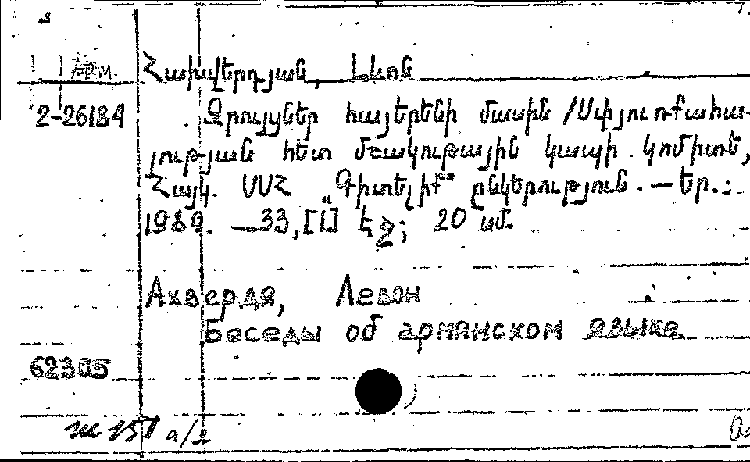 Арм.
Հախվերդյան, Լևոն
2-26184
Զրույցներ հայերենի մասին /Սփյուռքահա-
յության հետ մշակութային կապի կոմիտե,
Հայկ. ՍՍՀ „Գիտելիք“ ընկերություն. — Եր.:
1989. — 33, [1] էջ; 20 սմ.
Ахвердя, Левон
Беседы об армянском языке
62305
а/2